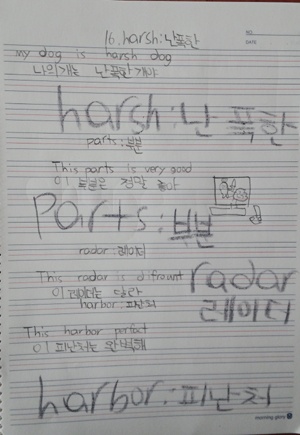 NO.
DATE
16. harsh: 난폭한
my dog is harsh dog
나의개는 난폭한개야
harsh: 난 폭한
parts: 부분
This parts is very good
이 부분은 정말 좋아
Parts: 부분
radar: 레이터
This radar is difrount
이레이터는 달라
radar
레이터
harbor: 피난처
This harbor perfect
이 피난처는 완벽해
harbor: 피난처
morning glory